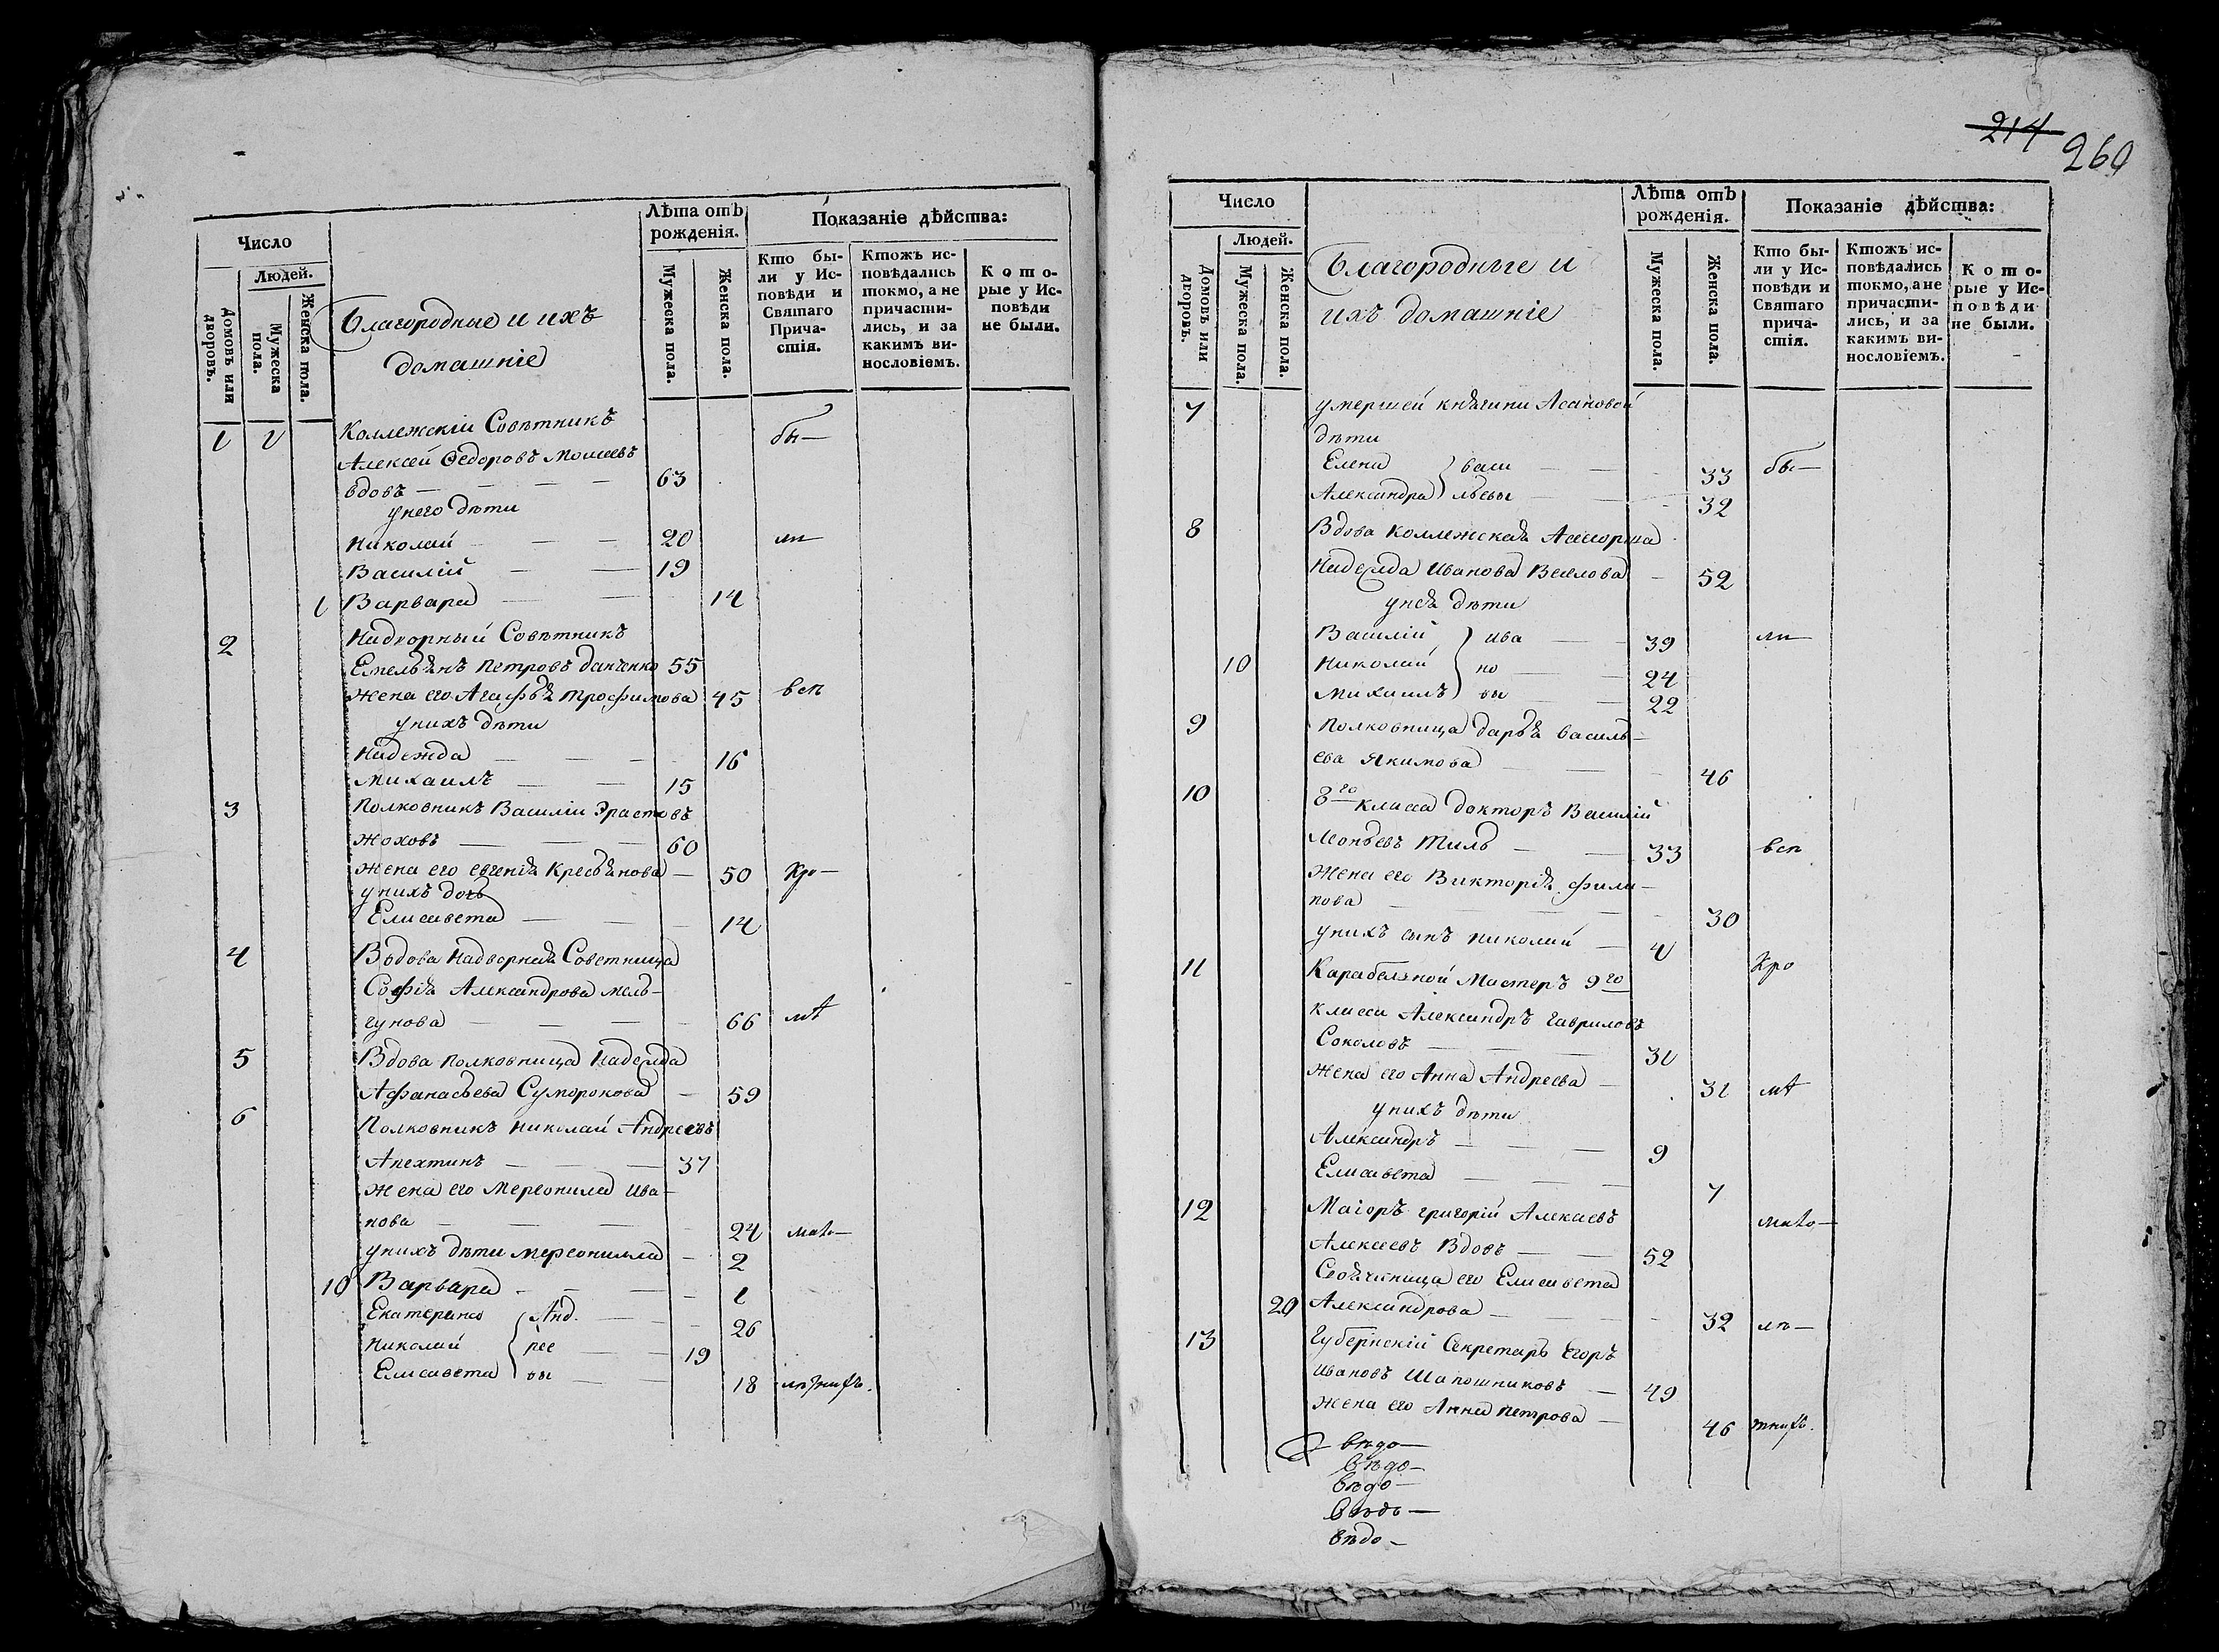 Число
Людей.
Домовъ или дворовъ.
Мужеска пола.
Женска пола.
Благородные и ихъ
домашніе
Лѣта отъ
рожденія.
Мужеска пола.
Женска пола.
Показаніе дѣйства:
Кто бы-
ли у Ис-
повѣди и
Святаго
Прича-
стія.
Ктожъ ис-
повѣдались
токмо, а не
причасти-
лись, и за
какимъ ви-
нословіемъ.
Кото-
рые у Ис-
повѣди
не были.
1 1 Коллежскій Совѣтникъ бы—
Алексѣй Ѳедоровъ Моисеевъ
вдовъ — — — — 63
у него дѣти
Николай — — — 20 ли—
Василій — — 19
1 Варвара — — 14
2 Надворный Совѣтникъ
Емельянъ Петровъ Данченко 55
Жена его Агафья Трофимова 45 всп
у нихъ дѣти
Надежда — — — 16
Михаилъ — — 15
3 Полковникъ Василій Эрастовъ
Жоховъ — — — 60
Жена его Евгенія Кресьянова — 50 Кро—
у нихъ дочь
Елисавета — — — 14
4 Вдова Надворная Советница
Софія Александрова Мель-
гунова — — — — 66
5 Вдова Полковница Надежда
Афанасьева Суморокова — 59
6 Полковникъ Николай Андреевъ
Апехтинъ — — — 37
Жена его Мереонила Ива-
нова — — — — 24
у нихъ дѣти Мереонилла — 2
10 Варвара — — — 1
Екатерина Анд. — — 26
Николай рее — — 19
Елисавета вы — — 18
214
260
Число
Людей.
Домовъ или дворовъ.
Мужеска пола.
Женска пола.
Благородные и
ихъ домашніе
Лѣта отъ
рожденія.
Мужеска пола.
Женска пола.
Показаніе дѣйства:
Кто бы-
ли у Ис-
повѣди и
Святаго
прича-
стія.
Ктожъ ис-
повѣдались
токмо, а не
причасти-
лись, и за
какимъ ви-
нословіемъ.
Кото-
рые у Ис-
повѣди
не были.
7 умершей княгини Асановой
дѣти
Елена васи — — 33 бы—
Александра льевы — — 32
8 Вдова Коллежская Ассесорша
Надежда Иванова Веялова — 52
у нея дѣти
Василій ива — — 39 ли—
10 Николай но — — 24
Михаилъ вы — — 22
9 Полковница Дарья Василь-
ева Якимова — — — 46
10 8го класса Докторъ Василій
Леоньевъ Тиль — — 33 всп
Жена его Викторія Фили-
пова — — — — 30
у нихъ сынъ Николай — 4
11 Карабельной Мастеръ 9го Кро
класса Александръ Гавриловъ
Соколовъ — — — 31
Жена его Анна Андреева — 31
у нихъ дѣти
Александръ — — — 9
Елисавета — — — 7
12 Маіоръ Григорій Алексѣевъ
Алексеевъ Вдовъ — — 52
Своячиница его Елисавета
20 Александрова — — — 32
13 Губернскій Секретарь Егоръ
Ивановъ Шапошниковъ — 49
Жена его Анна Петрова — 46
вѣдо—
вѣдо—
вѣдо—
вѣдо—
вѣдо—